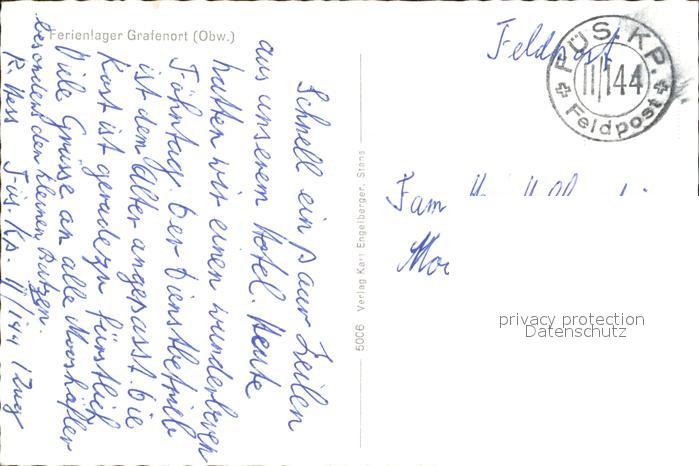 Ferienlager Grafenort (Obw.)
Feldpost
FÜS. KP.
II/144
Feldpost
Schnell ein paar Zeilen
aus unserem Hotel. Heute
hatten wir einen wunderbaren
Föhntag. Der Dienstbetrieb
ist dem Alter angepasst. Die
Kost ist geradezu fürstlich
Viele Grüsse an alle Mooshäfler
besonders den kleinen Butzen.
R. Hess Füs. Kp. II/144 1 Zug
5006 Verlag Karl Engelberger, Stans
Fam
privacy protection
Datenschutz